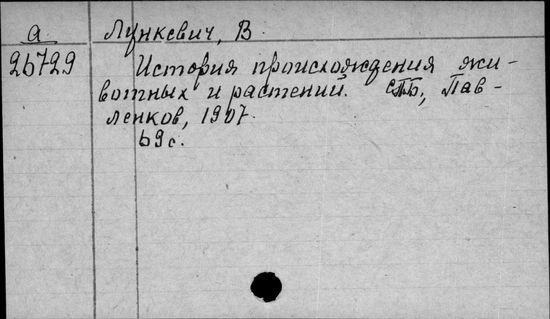 а Лункевич, В
26729 История происхождения жи-
вотных и растений. СПБ, Пав-
ленков, 1907.
69с.